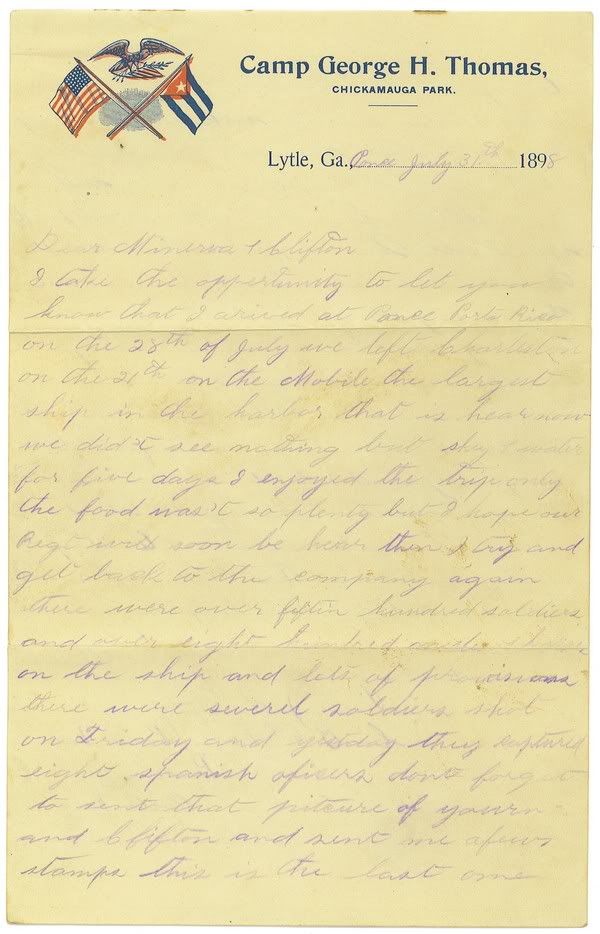 Camp George H. Thomas,
CHICKAMAUGA PARK.
Lytle, Ga., Ponce July 31th 1898
Dear Minerva & Clifton
I take the opportunity to let you
know that I arived at Ponce Porto Rico
on the 28th of July we left Charleston
on the 21th on the Mobile the largest
ship in the harbor that is hear now
we did't see nothing but sky & water
for five days I enjoyed the trip only
the food was't so plenty but I hope our
Regt will soon be hear then I try and
get back to the company again
there were over fiftin hundred soldiers
and over eight hundred
on the ship and lots of provisions
there were severel soldiers shot
on Friday and they captured
eight spanish oficers dont forget
to sent that pitcure of yourn
and Clifton and sent me afew
stamps this is the last one